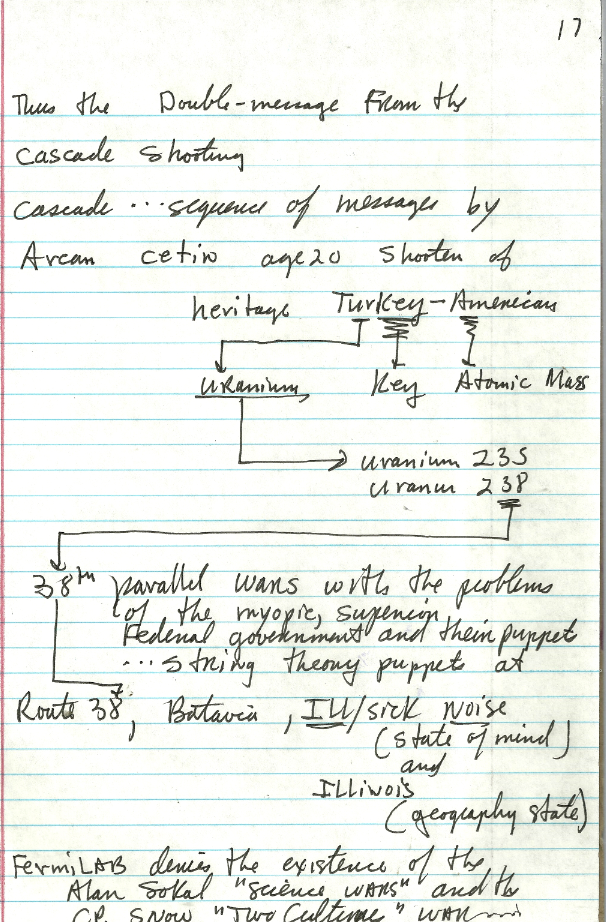 17
Thus the Double-message From the
Cascade Shooting
Cascade ... sequence of messages by
Arcan cetin age 20 Shooter of
heritage Turkey-American
uranium Key Atomic Mass
uranium 235
uranium 238
38th parallel wars with the problems
of the myopic, superior
Federal government and their puppet
... string theory puppets at
Route 38, Batavia, ILL/sick Noise
(state of mind)
and
ILLinois
(geography state)
FermiLAB denies the existence of the
Alan Sokal "science WARS" and the
CP. Snow "Two Cultures" WAR